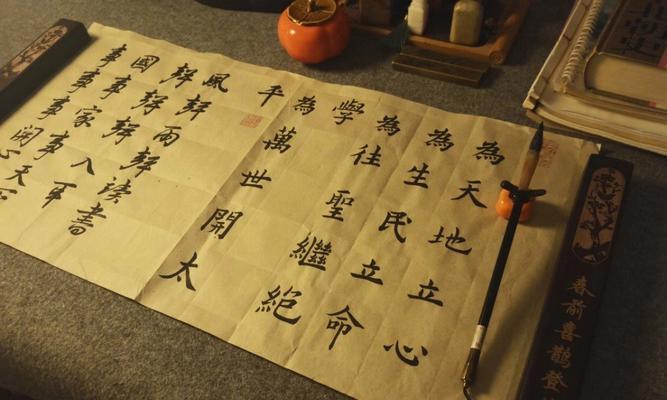 為天地立心
為生民立命
為往聖繼絕
學
為萬世開太
平
風聲雨聲讀書
聲聲聲入耳
國事家事天
事事事關心
春前喜鵲登